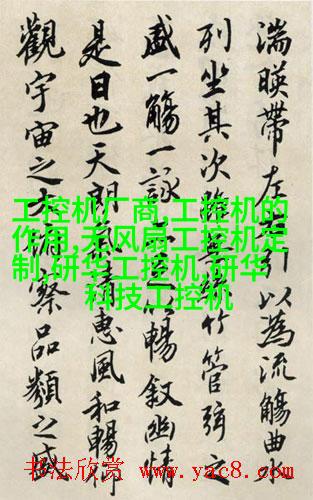 湍暎帶左引以為流觴曲
列坐其次雖無絲竹管弦之
盛一觴一詠足以暢敘幽情
是日也天朗惠風和暢仰
觀宇宙之大察品類之盛
工控机厂商,工控机的
作用,无风扇工控机定
制,研华工控机,研华
科技工控机
书法欣赏 www.yac8.com